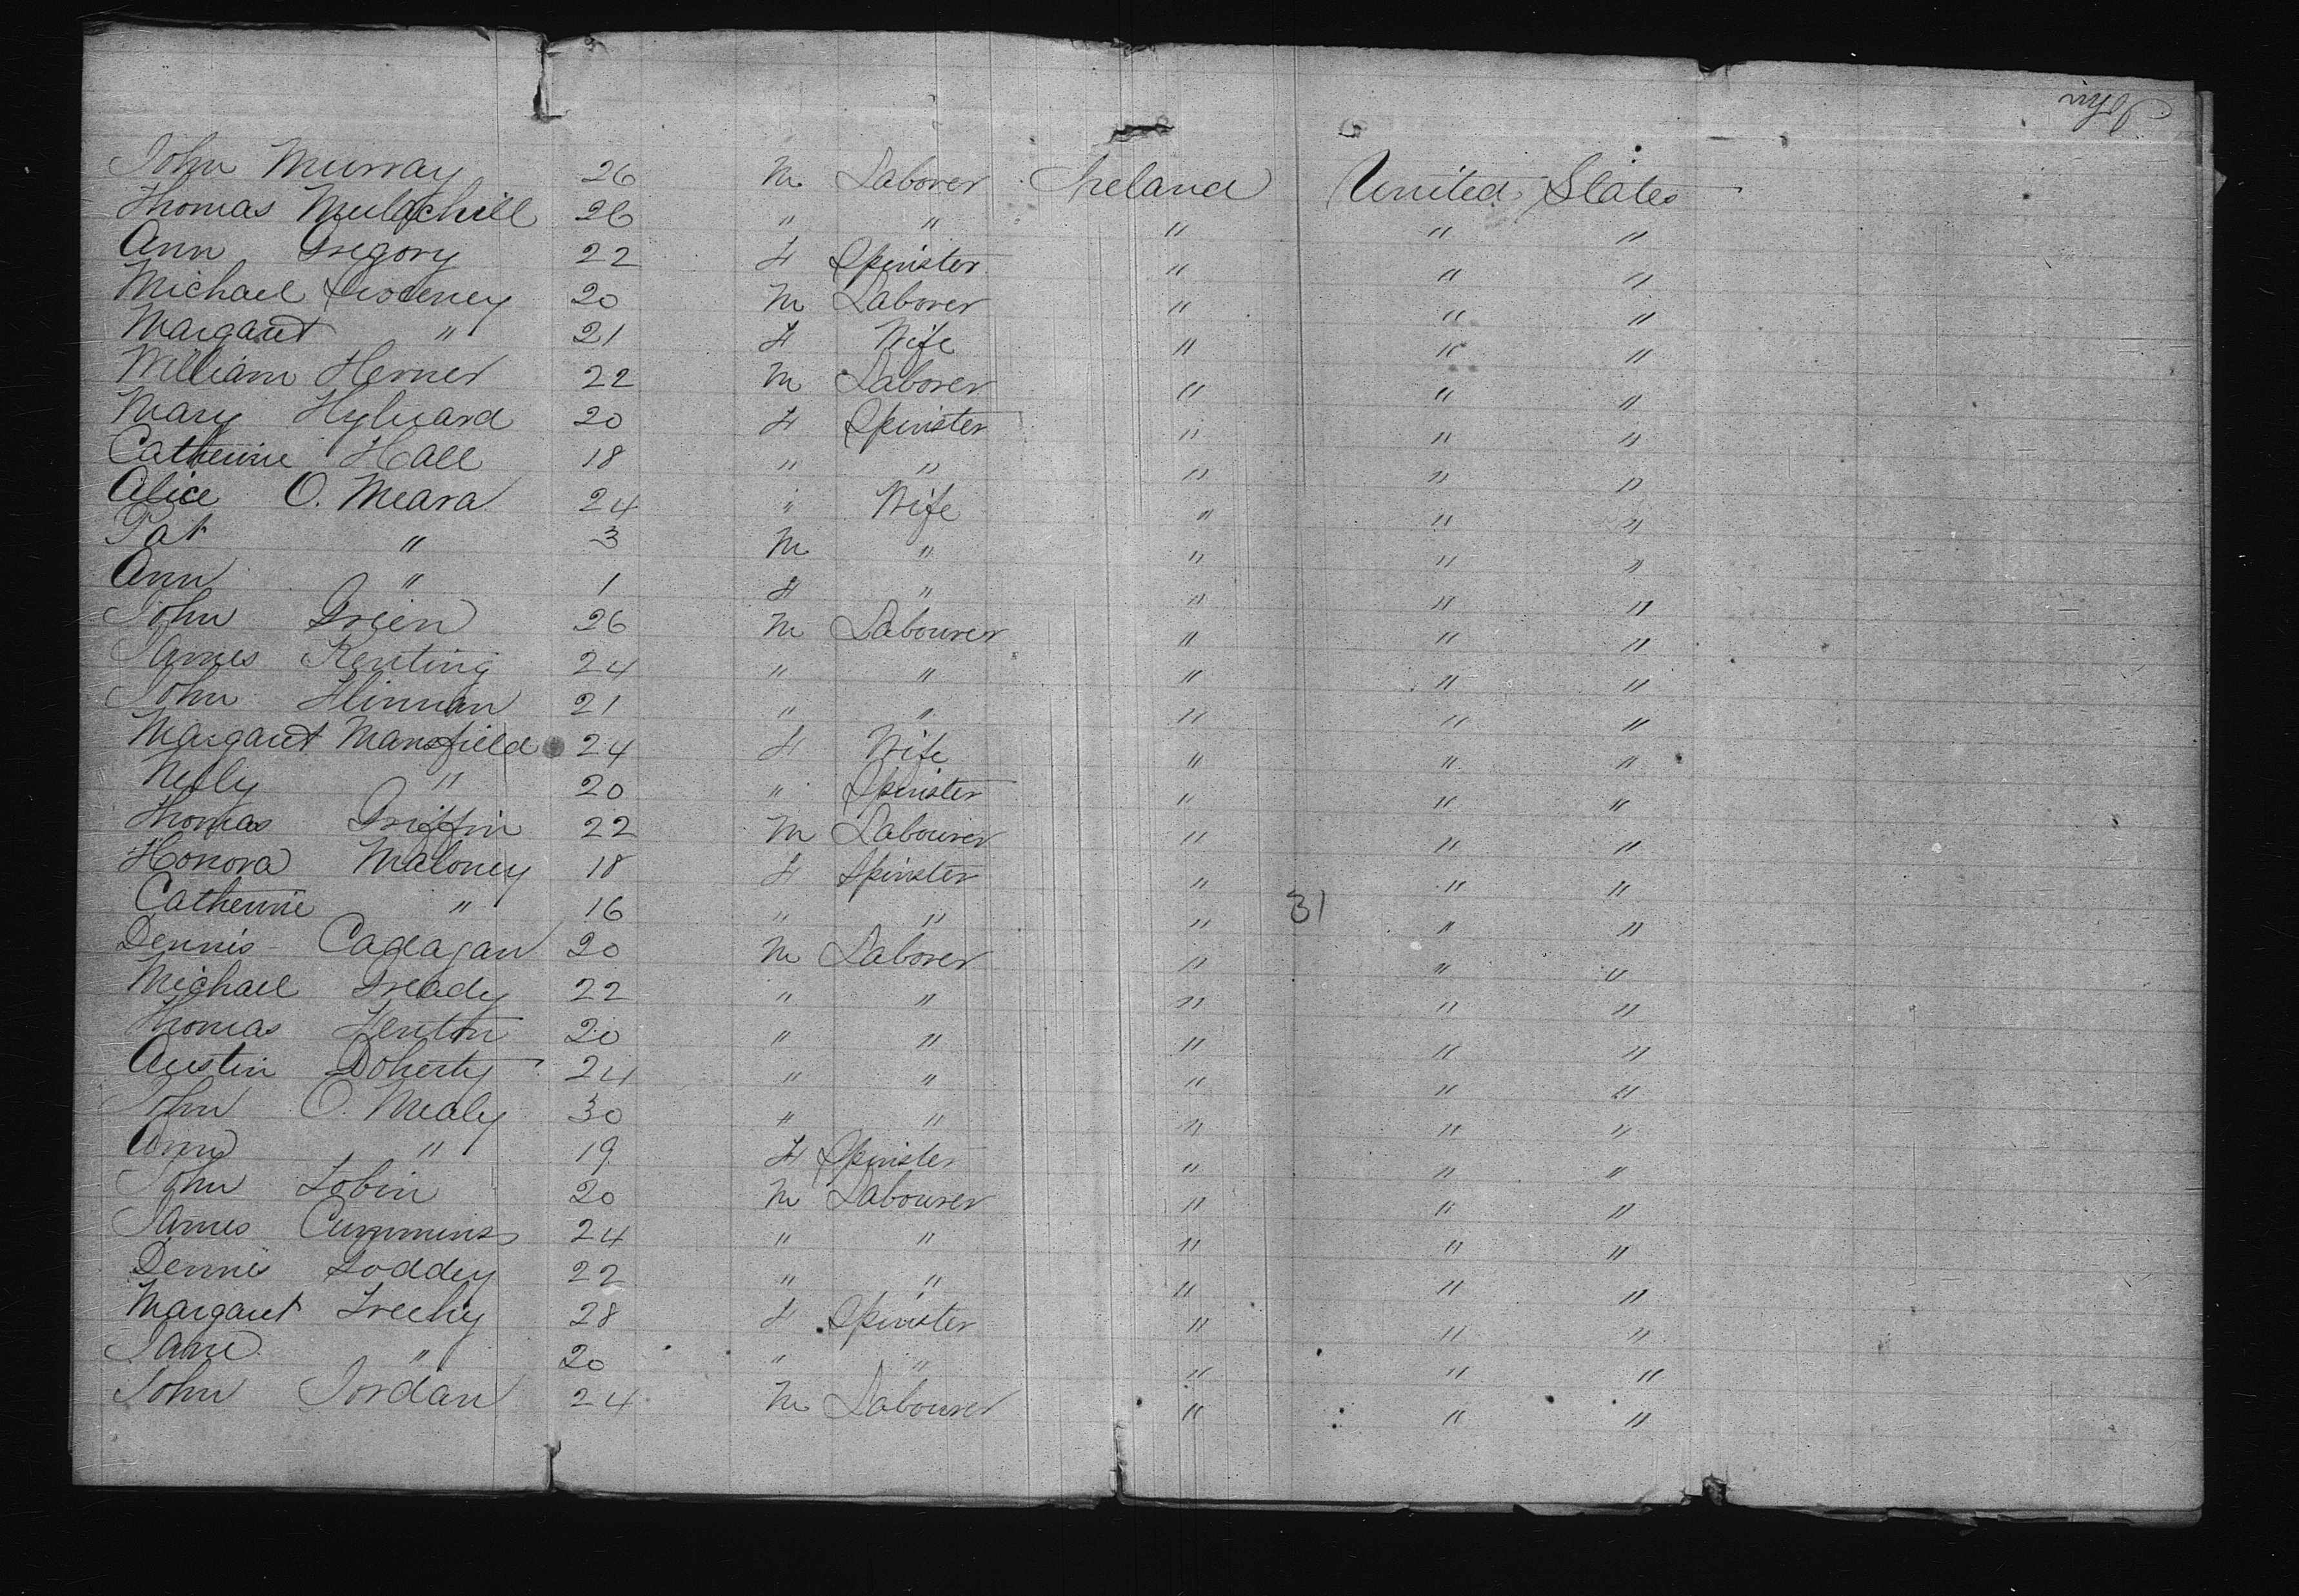 John Murray 26 M Laborer Ireland United States
Thomas Mulachill 26 " " " " "
Ann Gregory 22 F Spinster " " "
Michael Sweeney 20 M Laborer " " "
Margaret " 21 F Wife " " "
William Herner 22 M Laborer " " "
Mary Hyluard 20 F Spinster " " "
Catherine Hall 18 " " " " "
Alice O. Meara 24 " Wife " " "
Pat " 3 M " " " "
Ann " 1 F " " " "
John Green 26 M Labourer " " "
James Kenting 24 " " " " "
John Flinnan 21 " " " " "
Margaret Mansfield 24 F Wife " " "
Nelly " 20 " Spinster " " "
Thomas Griffin 22 M Labourer " " "
Honora Maloney 18 F Spinster " " "
Catherine " 16 " " " 31 " "
Dennis Cadagan 20 M Laborer " " "
Michael Gready 22 " " " " "
Thomas Fenton 20 " " " " "
Austin Doherty 24 " " " " "
John O. Mealy 30 " " " " "
Ann " 19 F Spinster " " "
John Tobin 20 M Labourer " " "
James Cummins 24 " " " " "
Dennis Loddey 22 " " " " "
Margaret Treehy 28 F Spinster " " "
Jane " 20 " " " " "
John Jordan 24 M Labourer " " "